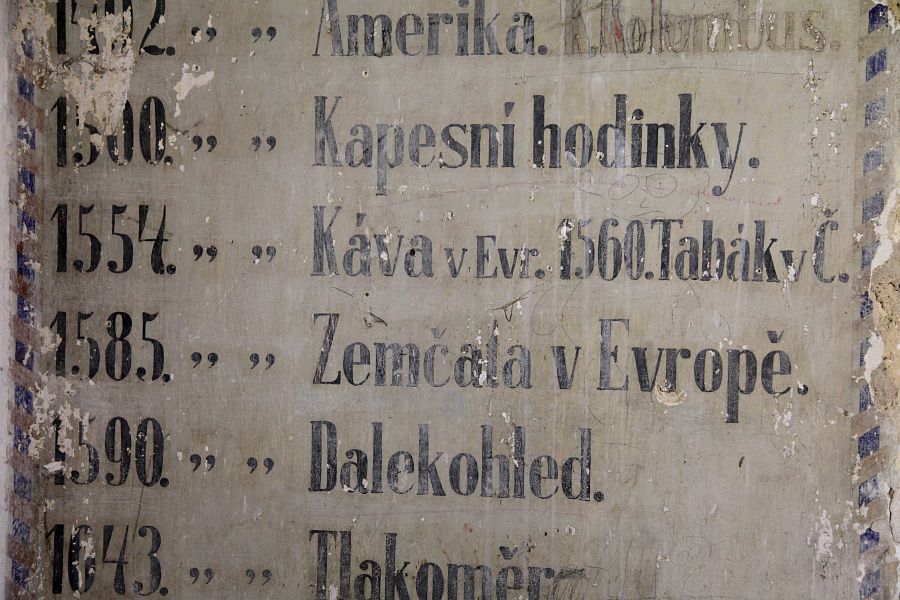 1492. „ „ Amerika. K. Kolumbus.
1500. „ „ Kapesní hodinky.
1554. „ „ Káva v Evr. 1560. Tabák v Č.
1585. „ „ Zemčata v Evropě.
1590. „ „ Dalekohled.
1643. „ „ Tlakoměr